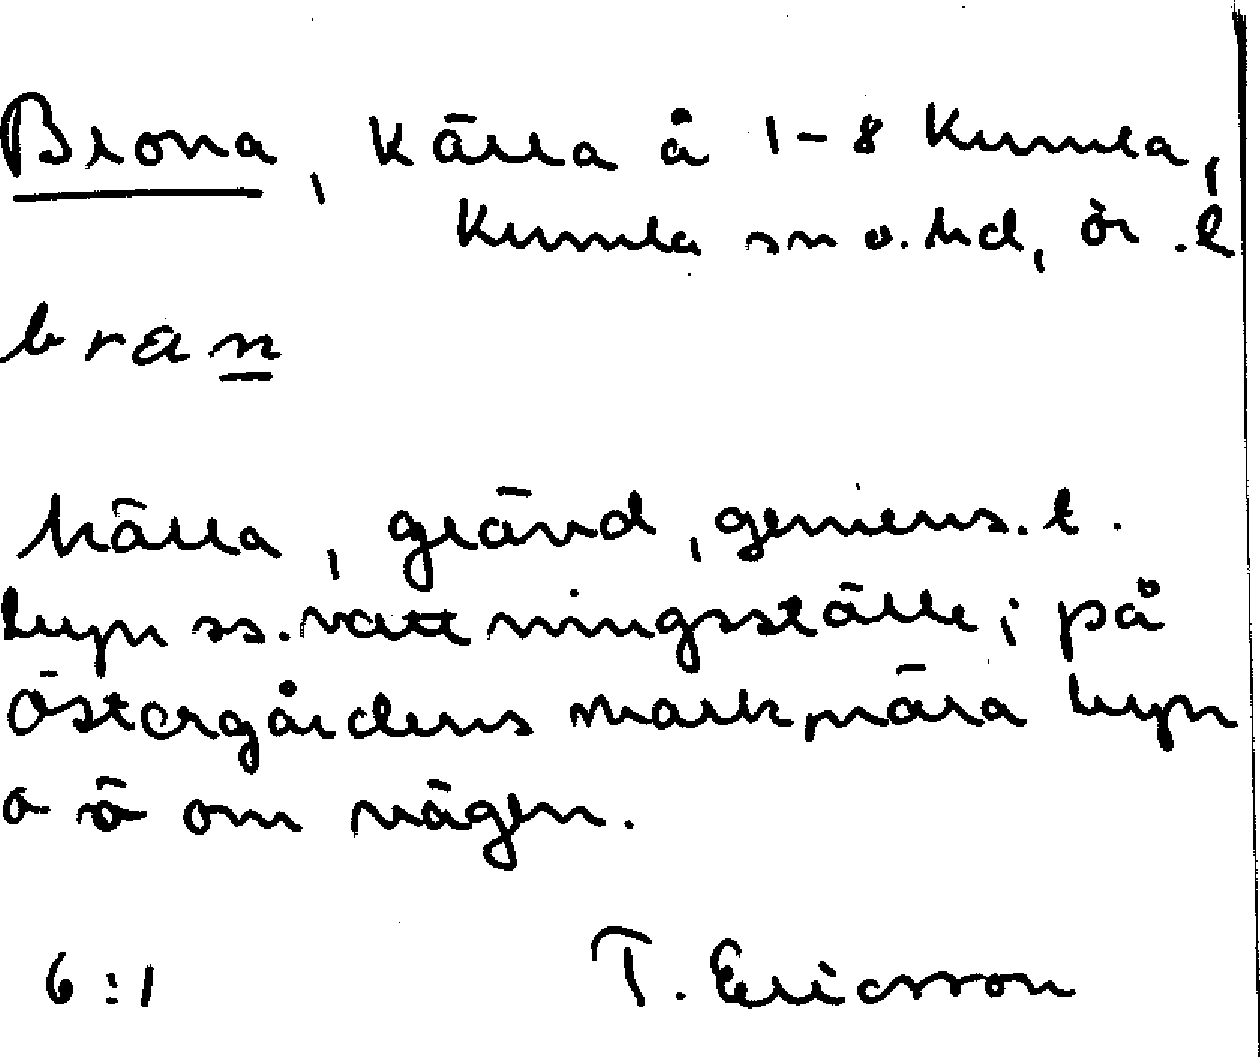 Brona, Källa å 1-8 Kumla,
Kumla sn o. hd, ör. l
bran
Källa, grävd, gemens. t.
byn ss. vattningsställe; på
Östergårdens mark, nära byn
o ö om vägen.
6:1 T. Ericsson